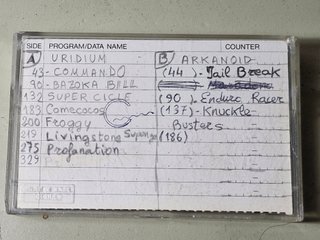 SIDE PROGRAM/DATA NAME COUNTER
A URIDIUM
43 - COMMANDO
90 - BAZOKA BILL
132 SUPER CICLE
183 Comecocos
200 Froggy
219 Livingstone Supongo
275 Profanation
329
B ARKANOID
(44) - Jail Break
(90) - Enduro Racer
(137) - Knuckle
Busters
(186)